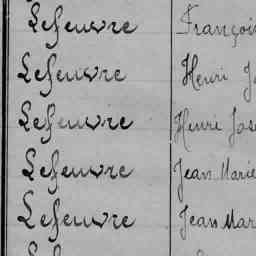 Lefeuvre François
Lefeuvre Henri
Lefeuvre Henri Jos
Lefeuvre Jean Marie
Lefeuvre Jean Mar